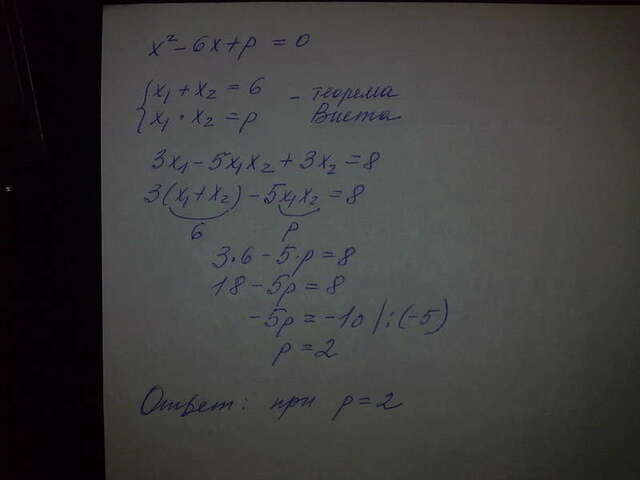 x² - 6x + p = 0
{ x₁ + x₂ = 6 - теорема
{ x₁ · x₂ = p Виета
3x₁ - 5x₁x₂ + 3x₂ = 8
3(x₁ + x₂) - 5x₁x₂ = 8
6 p
3·6 - 5·p = 8
18 - 5p = 8
-5p = -10 |:(-5)
p = 2
Ответ: при p = 2